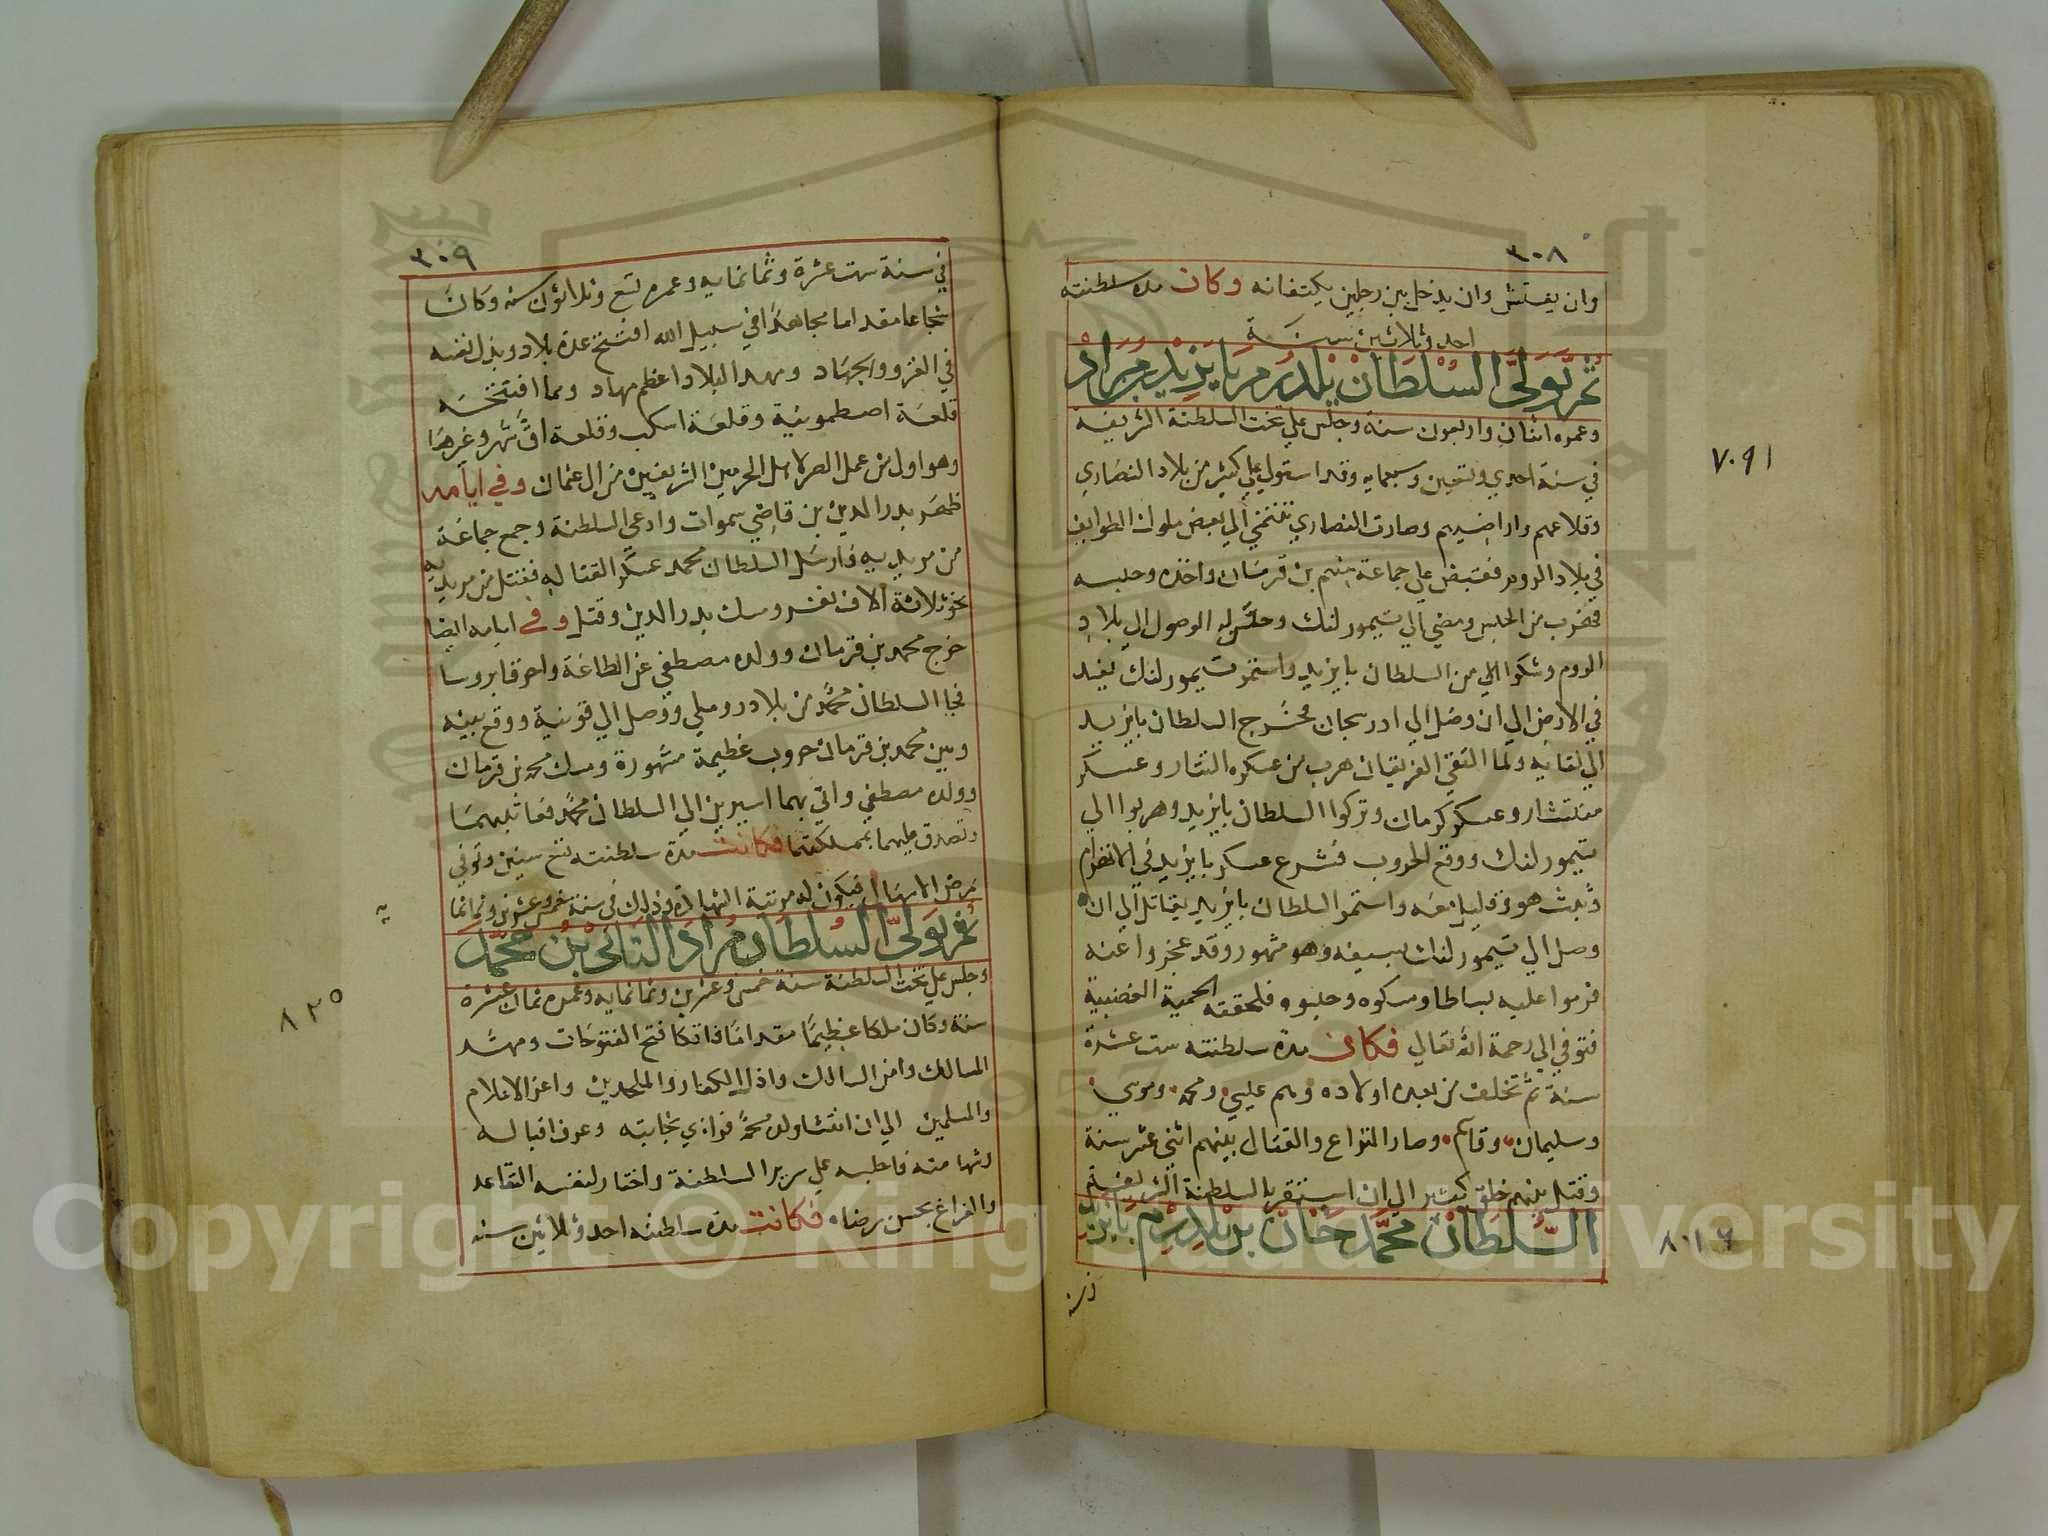 ٣٠٨
وان يفتش وان يدخل بين رجلين يكتفانه وكان مدة سلطنته
احد وثلاثين سنة
ثم تولى السلطان يلدرم بايزيد بن مراد
وعمره اثنان واربعون سنة وجلس علي تخت السلطنة الشريفة
في سنة احدي وتسعين وسبعمايه وقد استولي علي كثير من بلاد النصاري
٧٠٩١
وقلاعهم واراضيهم وصارت النصاري تنتمي الي بعض ملوك الطوايف
في بلاد الروم فقبض علي جماعة منهم بن قرمان واخذه وحبسه
فهرب من الحبس ومضي الي تيمور لنك وحسن له الوصول الي بلاد
الروم وشكوا الي من السلطان بايزيد واستمر تيمور لنك يفسد
في الارض الي ان وصل الي ادربيجان فخرج السلطان بايزيد
الي لقايه ولما التقي الفريقان هرب من عسكره التتار وعسكر
منتشار وعسكر كرمان وتركوا السلطان بايزيد وهربوا الي
تيمور لنك ووقع الحروب فشرع عسكر بايزيد في الانهزام
وثبت هو وقليل معه واستمر السلطان بايزيد يقاتل الي ان
وصل الي تيمور لنك بسيفه وهو مشهور وقد عجزوا عنه
فرموا عليه بساطا ومسكوه وحبسوه فلحقته الحمية الغضبية
فتوفي الي رحمة الله تعالي فكان مدة سلطنته ست عشرة
سنة ثم تخلف من بعده اولاده وهم عليي ومحمد وموسي
وسليمان وقاسم وصار النزاع والقتال بينهم اثني عشر سنة
وقتل بينهم خلق كثير الي ان استقر بالسلطنة الشريفة
السلطان محمد خان بن يلدرم بايزيد
٨٠١٦
في سنة
٣٠٩
في سنة ست عشرة وثمانمايه وعمره تسع وثلاثون سنه وكان
شجاعا مقداما مجاهدا في سبيل الله افتتح عدة بلاد وبذل نفسه
في الغزو والجهاد ومهد البلاد اعظم مهاد ومما افتتحه
قلعة اصطمونية وقلعة اسكب وقلعة اق شهر وغيرها
وهو اول من عمل الصر لاهل الحرمين الشريفين من ال عثمان وفي ايامه
ظهر بدر الدين بن قاضي سموات وادعي السلطنة وجمع جماعة
من مريديه فارسل السلطان محمد عسكر القتاله فقتل من مريديه
نحو ثلاثة الاف نفر ومسك بدر الدين وقتل وفي ايامه ايضا
خرج محمد بن قرمان وولده مصطفي عن الطاعة واحرقا بروسا
فجا السلطان محمد من بلاد روملي ووصل الي قونية ووقع بينه
وبين محمد بن قرمان حروب عظيمة مشهورة ومسك محمد بن قرمان
وولده مصطفي واتي بهما اسيرين الي السلطان محمد فعاتبهما
وتصدق عليهما بمملكتهما فكانت مدة سلطنته تسع سنين وتوفي
بمرض الاسهال فيكون له مرتبة الشهادة وذلك في سنة خمس وعشرين وثمانما
يه
ثم تولى السلطان مراد الثاني بن محمد
وجلس علي تخت السلطنة سنة خمس وعشرين وثمانمايه وعمره ثمان عشرة
٨٢٥
سنة وكان ملكا عظيما مقداما فاتكا فتح الفتوحات ومهد
المسالك وامن السالك واذل الكفار والملحدين واعز الاسلام
والمسلمين الي ان انتشا ولده محمد فراي نجابته وعرف اقباله
وشهامته فاجلسه علي سرير السلطنة واختار لنفسه التقاعد
والفراغ بحسن رضاه فكانت مدة سلطنته احد وثلاثين سنه
Copyright © King Saud University
1957